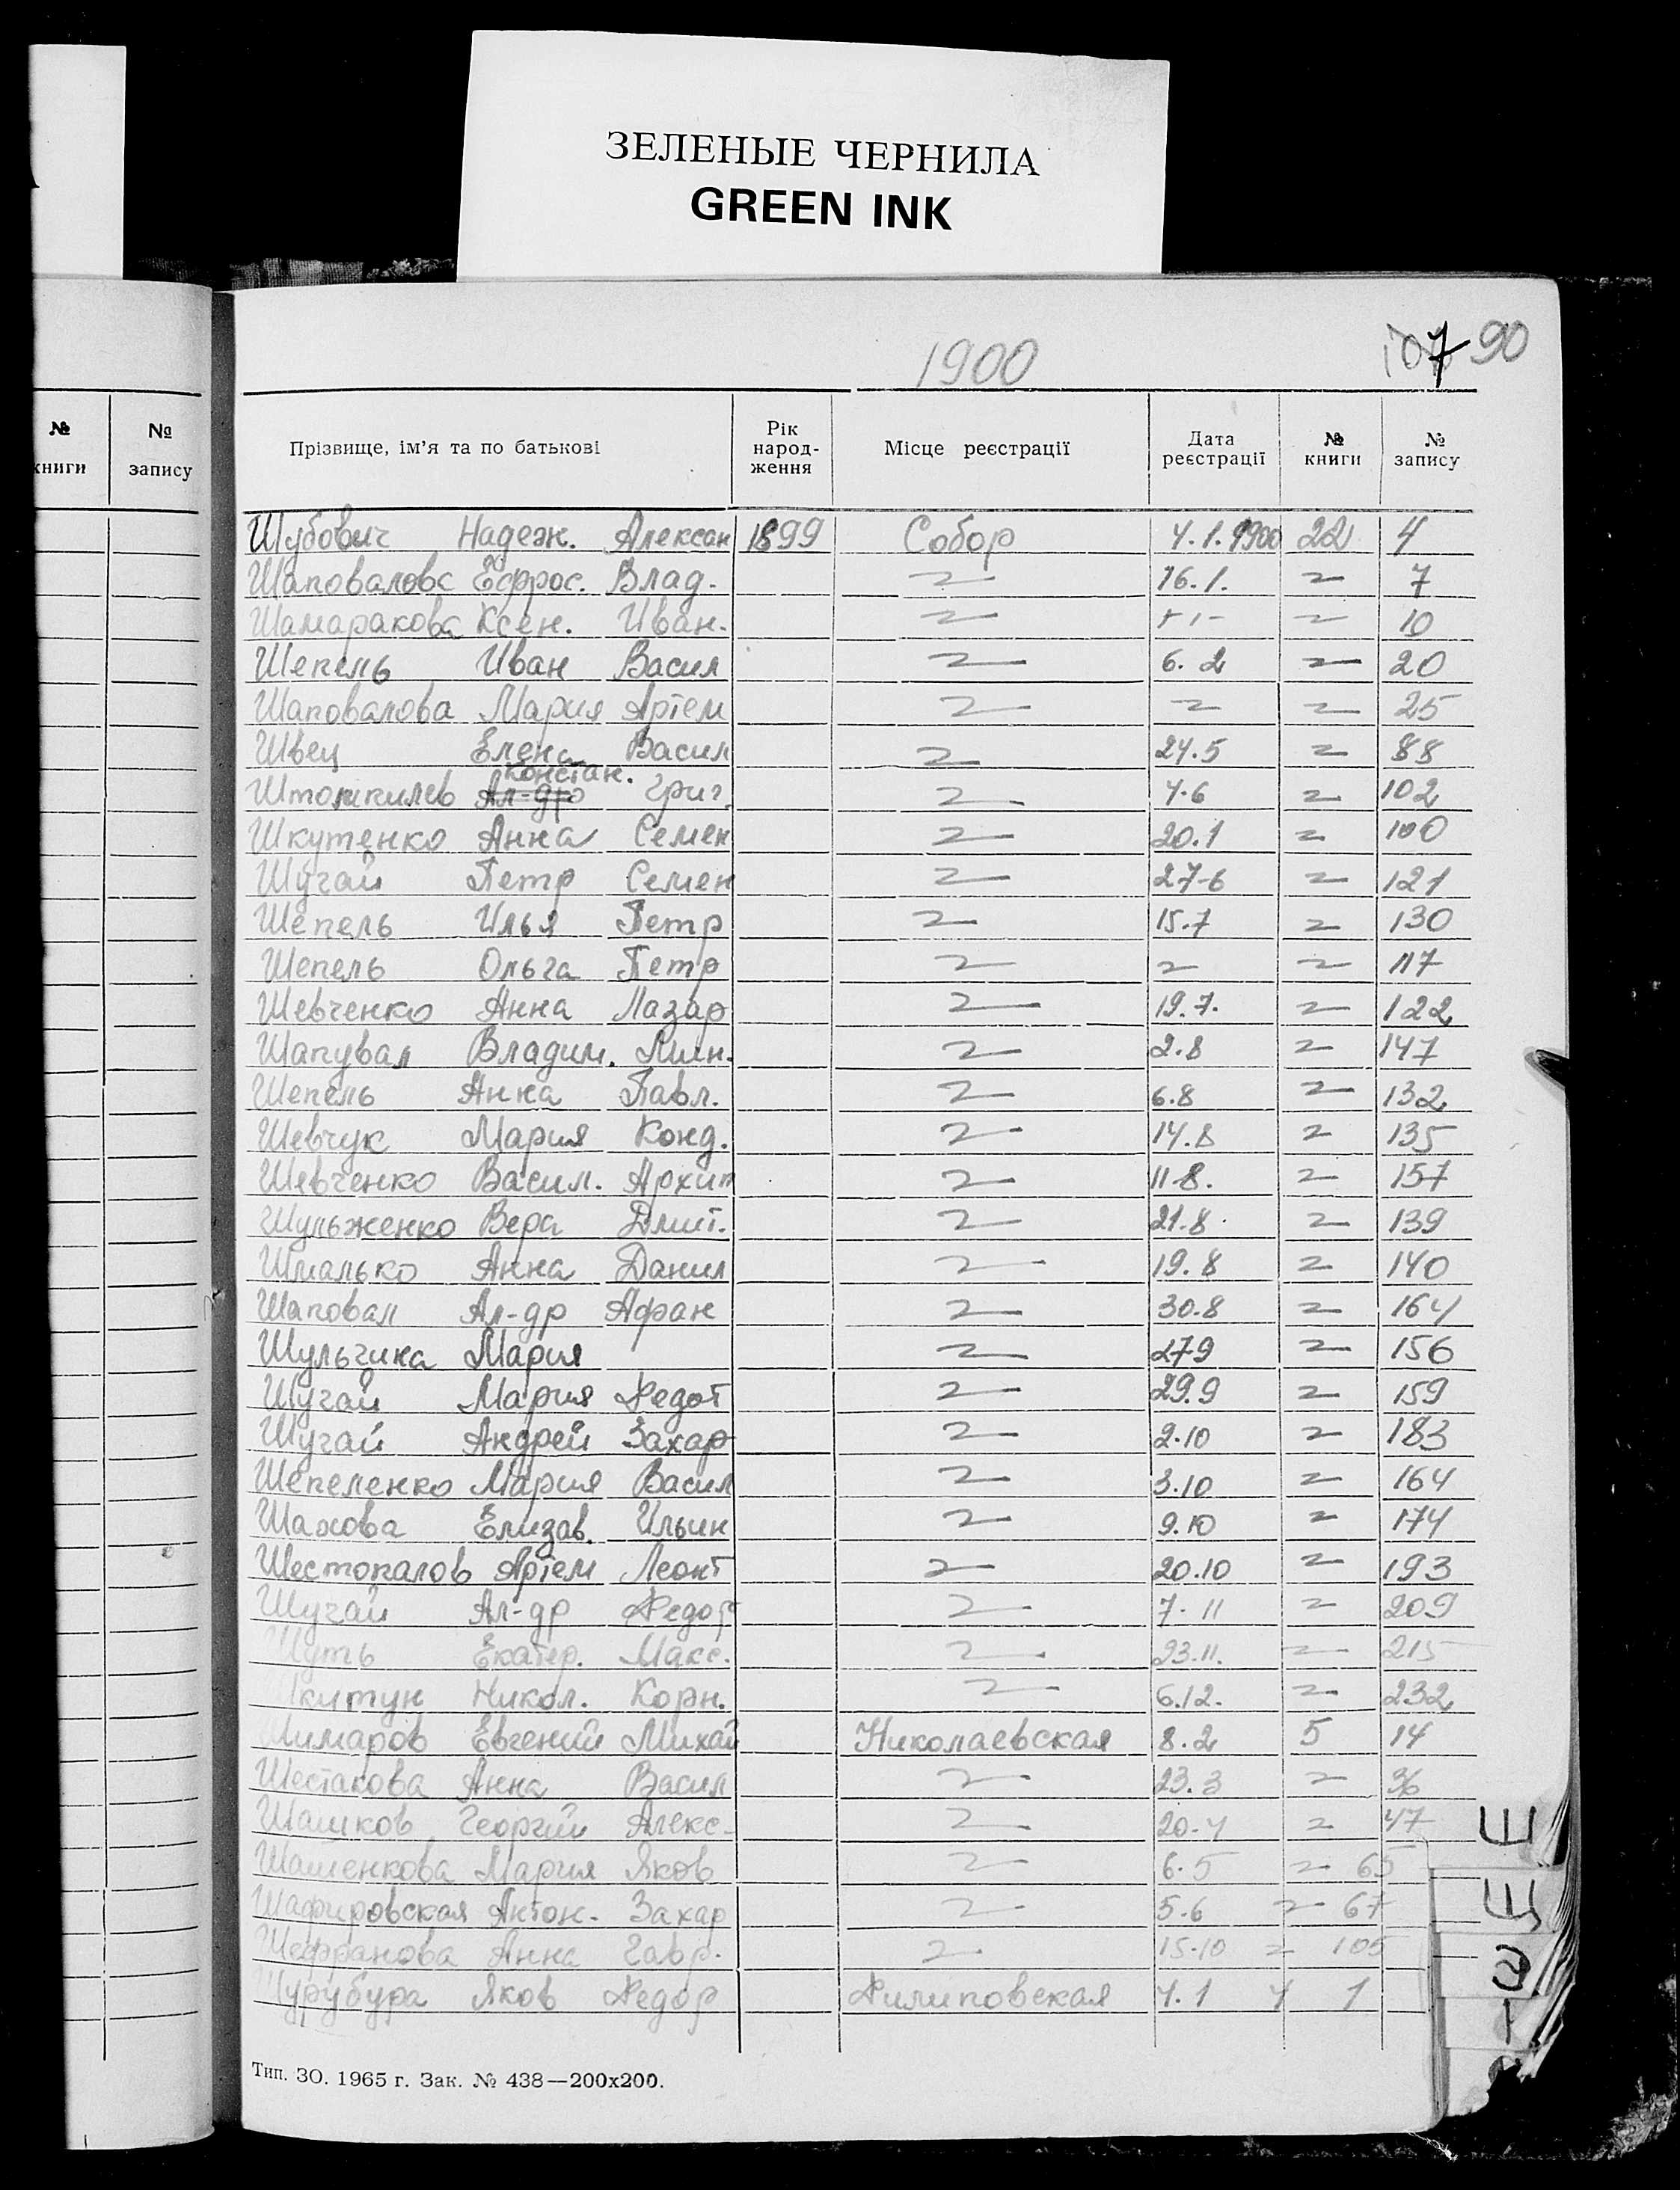 ЗЕЛЕНЫЕ ЧЕРНИЛА
GREEN INK
1900
107 90
№ книги № запису
Прізвище, ім’я та по батькові Рік народ-ження Місце реєстрації Дата реєстрації № книги № запису
Шубович Надеж. Алексан 1899 Собор 4.1.1900 22 4
Шаповалова Ефрос. Влад. 〃 16.1. 〃 7
Шамаракова Ксен. Иван. 〃 〃 10
Шепель Иван Васил 〃 6.2 〃 20
Шаповалова Мария Артем 〃 〃 〃 25
Швец Елена Васил 〃 24.5 〃 88
Констан.
Штомпилев Ал-др Григ. 〃 4.6 〃 102
Шкутенко Анна Семен 〃 20.1 〃 100
Шугай Петр Семен 〃 27-6 〃 121
Шепель Илья Петр 〃 15.7 〃 130
Шепель Ольга Петр 〃 〃 〃 117
Шевченко Анна Лазар 〃 19.7. 〃 122
Шапувал Владим. 〃 2.8 〃 147
Шепель Анна Павл. 〃 6.8 〃 132
Шевчук Мария Конд. 〃 14.8 〃 135
Шевченко Васил. Архип 〃 11-8. 〃 157
Шульженко Вера Дмит. 〃 21.8 〃 139
Шмалько Анна Данил 〃 19.8 〃 140
Шаповал Ал-др Афан 〃 30.8 〃 164
Шульгина Мария 〃 27.9 〃 156
Шугай Мария Федот 〃 29.9 〃 159
Шугай Андрей Захар 〃 2.10 〃 183
Шепеленко Мария Васил 〃 3.10 〃 164
Шахова Елизав. Ильин 〃 9.10 〃 174
Шестопалов Артем Леонт 〃 20.10 〃 193
Шугай Ал-др Федор 〃 7.11 〃 209
Шуть Екатер. Макс. 〃 23.11. 〃 215
Шкитун Никол. Корн. 〃 6.12. 〃 232
Шимаров Евгений Михай Николаевская 8.2 5 14
Шестакова Анна Васил 〃 23.3 〃 36
Шашков Георгий Алекс- 〃 20-4 〃 47
Шашенкова Мария Яков 〃 6.5 〃 65
Шафировская Антон. Захар 〃 5.6 〃 67
Шафранова Анна Гавр. 〃 15.10 〃 105
Шурубура Яков Федор Филиповская 4.1 4 1
Тип. ЗО. 1965 г. Зак. № 438—200х200.
Ш
Щ
Э